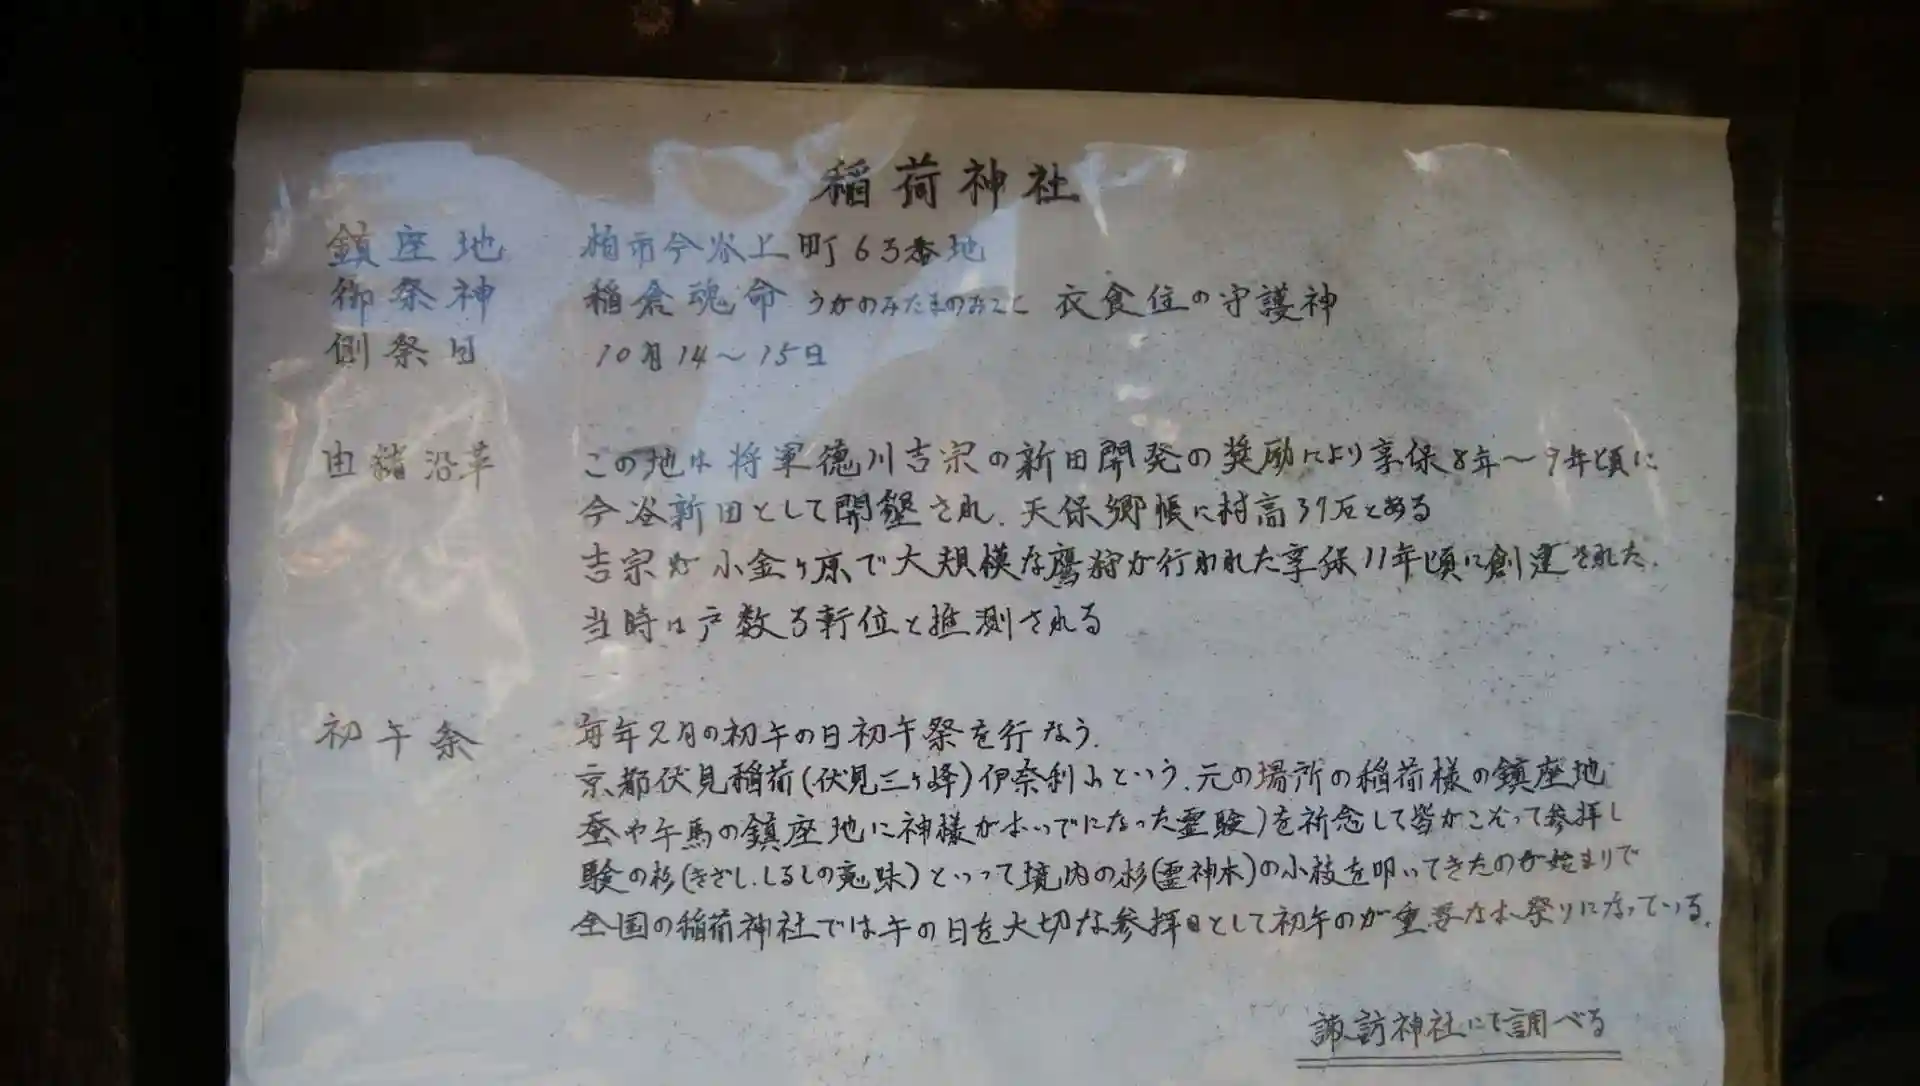 稲荷神社
鎮座地 柏市今谷上町63番地
御祭神 稲倉魂命 うかのみたまのみこと 衣食住の守護神
例祭日 10月14〜15日
由緒沿革 この地は将軍徳川吉宗の新田開発の奨励により享保8年〜9年頃に
今谷新田として開墾され、天保郷帳に村高37石とある
吉宗が小金ヶ原で大規模な鷹狩が行われた享保11年頃に創建された。
当時は戸数3軒位と推測される
初午祭 毎年2月の初午の日初午祭を行なう。
京都伏見稲荷(伏見三ヶ峰)伊奈利山という、元の場所の稲荷様の鎮座地
蚕や午馬の鎮座地に神様がおいでになった霊験)を祈念して皆がこぞって参拝し
験の杉(きざし、しるしの意味)といって境内の杉(霊神木)の小枝を叩いてきたのが始まりで
全国の稲荷神社では午の日を大切な参拝日として初午のが重要なお祭りになっている。
諏訪神社にて調べる